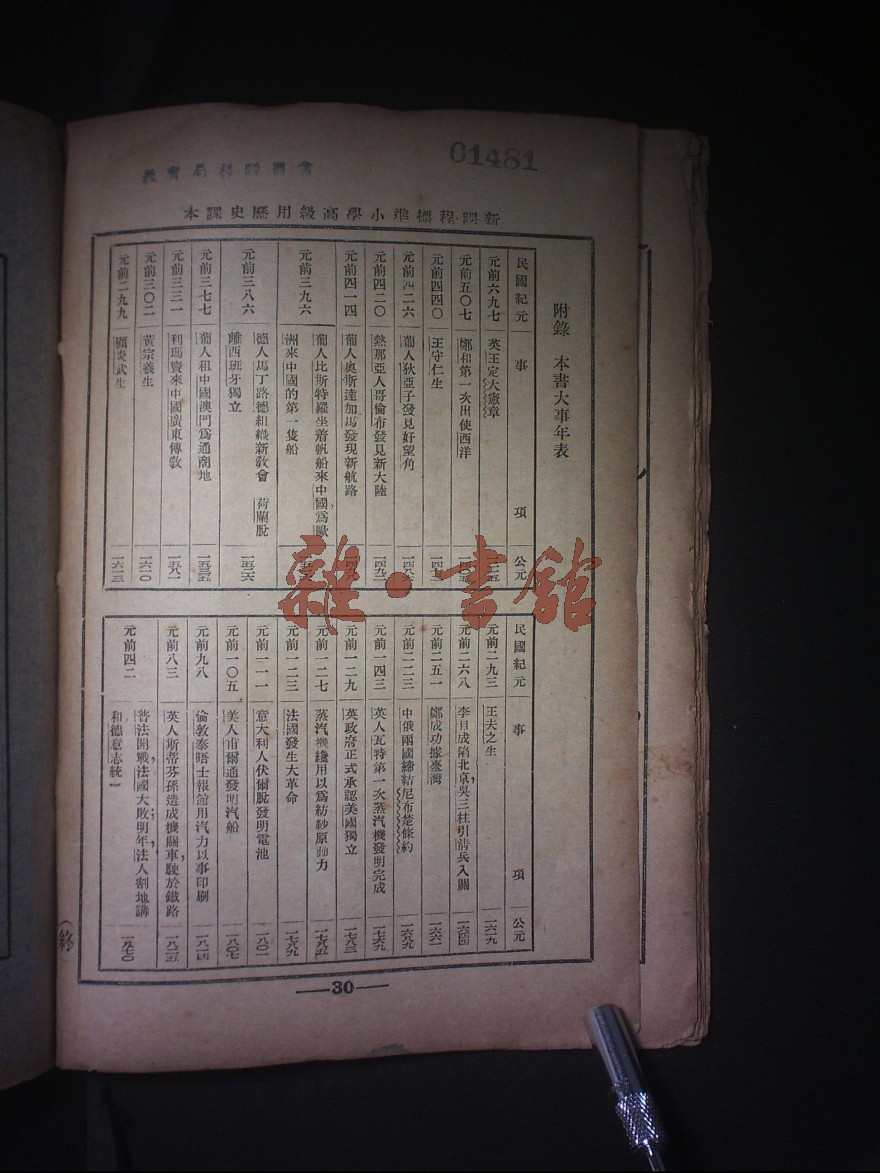 01481
新課程標準小學高級用歷史課本
附錄 本書大事年表
民國紀元 事項 公元
元前六九七 英王定大憲章
元前五〇七 鄭和第一次出使西洋
元前四四〇 王守仁生
元前四二六 葡人狄亞子發見好望角 一四八六
元前四二〇 熱那亞人哥倫布發見新大陸 一四九二
元前四一四 葡人奧斯達加馬發現新航路
元前三九六 葡人比斯特羅坐着帆船來中國,爲歐
洲來中國的第一隻船
元前三八六 德人馬丁路德組織新敎會 荷蘭脫
離西班牙獨立 一五二六
元前三七七 葡人租中國澳門爲通商地 一五三五
元前三三一 利瑪竇來中國廣東傳敎 一五八一
元前三〇二 黃宗羲生 一六一〇
元前二九九 顧炎武生 一六一三
民國紀元 事項 公元
元前二九三 王夫之生 一六一九
元前二六八 李自成陷北京,吳三桂引清兵入關 一六四四
元前二五一 鄭成功據臺灣 一六六一
元前二二三 中俄兩國締結尼布楚條約 一六八九
元前一四三 英人瓦特第一次蒸汽機發明完成 一七六九
元前一二九 英政府正式承認美國獨立 一七八三
元前一二七 蒸汽機纔用以爲紡紗原動力 一七八五
元前一二三 法國發生大革命 一七八九
元前一一一 意大利人伏爾脫發明電池 一八〇一
元前一〇五 美人甫爾通發明汽船 一八〇七
元前九八 倫敦泰晤士報館用汽力以事印刷 一八一四
元前八三 英人斯蒂芬孫造成機關車,駛於鐵路 一八二五
元前四二 普法開戰,法國大敗;明年,法人割地講
和德意志統一 一八七〇
(終)
30
雜·書館